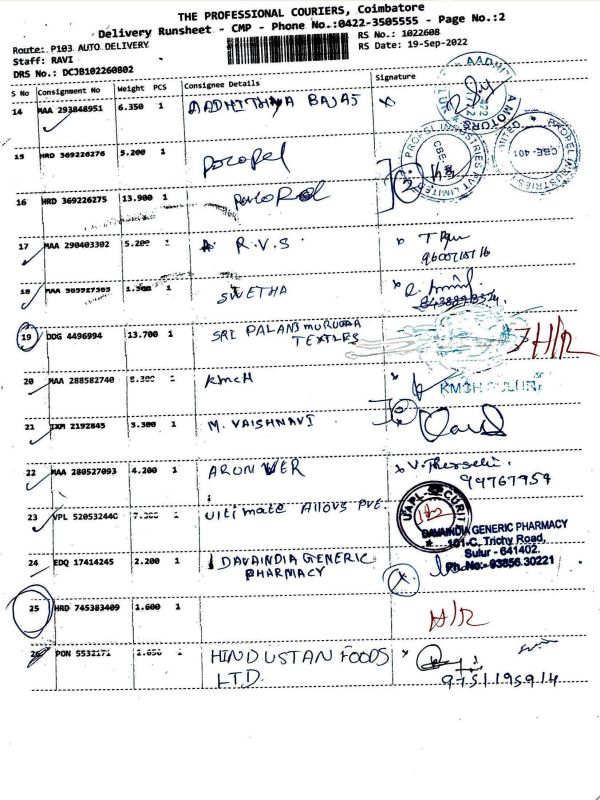 THE PROFESSIONAL COURIERS, Coimbatore
Delivery Runsheet - CMP - Phone No.:0422-3505555 - Page No.:2
Route: P103 AUTO DELIVERY
RS No.: 1022608
Staff: RAVI
RS Date: 19-Sep-2022
DRS No.: DCJB102260802
S No Consignment No Weight PCS Consignee Details Signature
14 MAA 293848951 6.350 1 AADHITHYA BAJAJ x
15 HRD 369226276 5.200 1 Propel
16 HRD 369226275 13.900 1 Propel
PROPEL INDUSTRIES PVT LIMITED
CBE-401
17 MAA 290403302 5.200 1 R.V.S
18 MAA 1.300 1 SWETHA
19 DDG 4496994 13.700 1 SRI PALANI MURUGAA
TEXTILES
H/R
20 MAA 288582740 8.300 1 KMCH
KMCH SULUR
21 IXM 2192845 3.300 1 M. VAISHNAVI
22 MAA 280527093 4.200 1 ARUN
23 VPL 520532440 7.300 1 Ultimate Alloys PVT
UAPL SECURITY
DAVAINDIA GENERIC PHARMACY
101-C, Trichy Road,
Sulur - 641402.
Ph.No:- 93856 30221
24 EDQ 17414245 2.200 1 DAVAINDIA GENERIC
PHARMACY
25 HRD 745383409 1.600 1 H/R
26 PON 5532171 1 HINDUSTAN FOODS
LTD.
9751195914